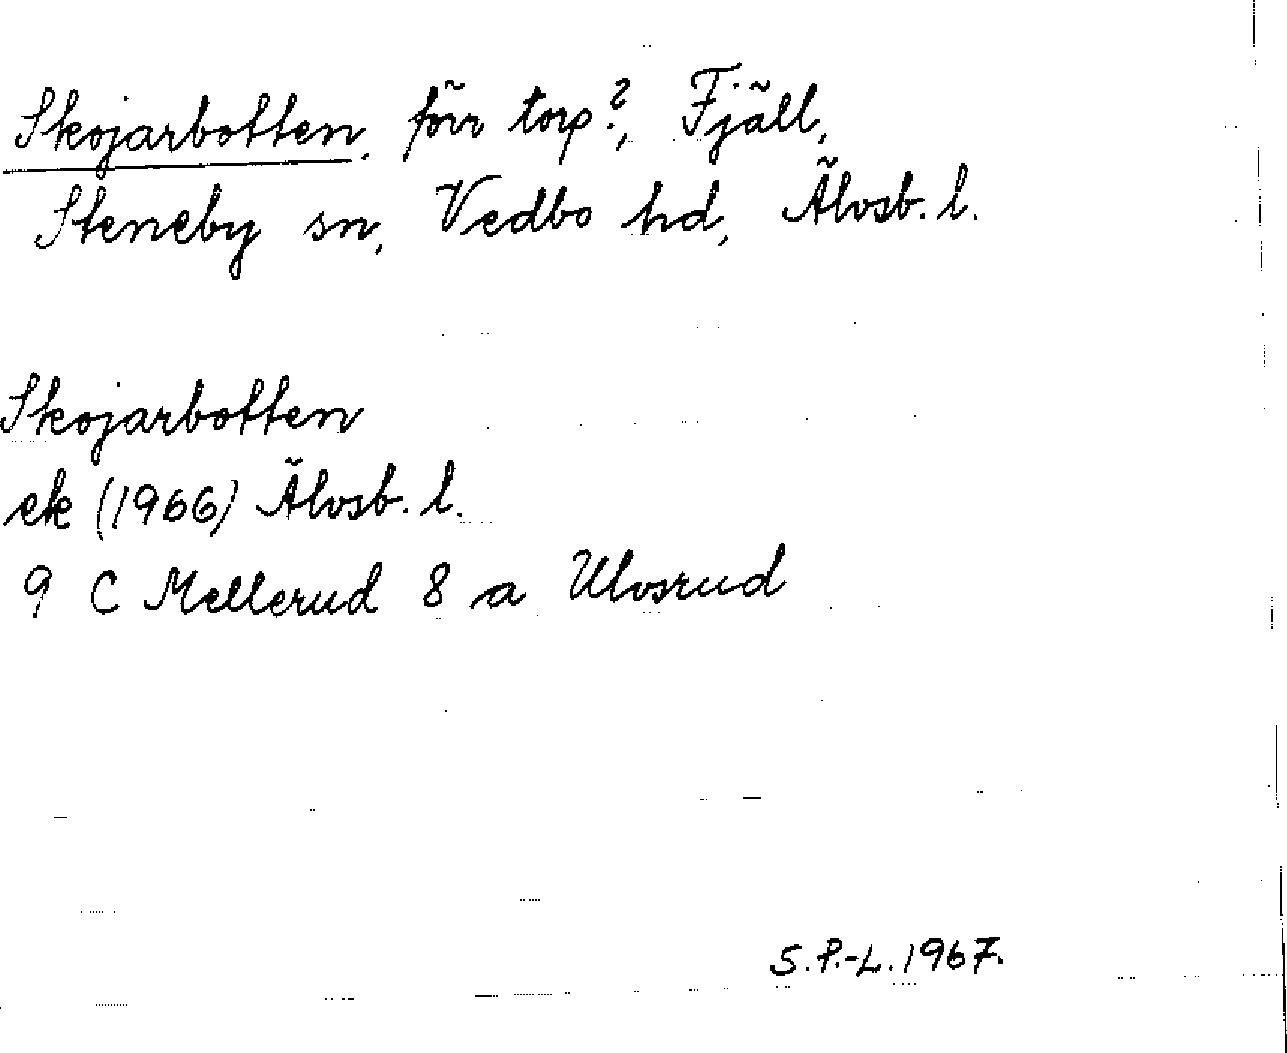 Skojarbotten, förr torp?, Fjäll,
Steneby sn, Vedbo hd, Älvsb. l.
Skojarbotten
ek (1966) Älvsb. l.
9 C Mellerud 8 a Ulvsrud
S.P.-L. 1967.